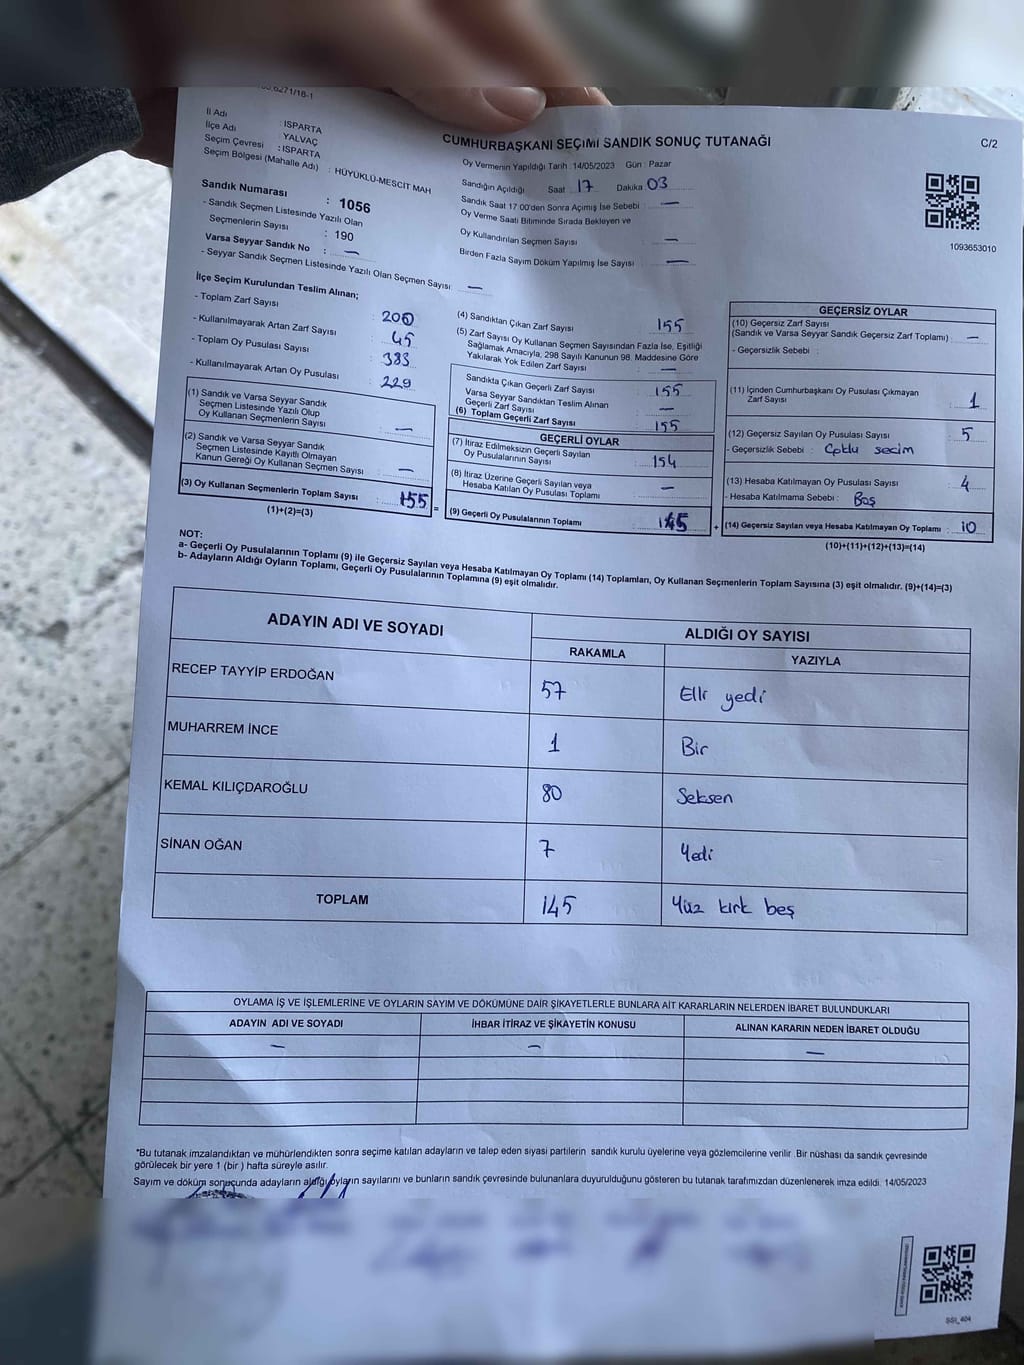 İl Adı : ISPARTA
İlçe Adı : YALVAÇ
Seçim Çevresi : ISPARTA
Seçim Bölgesi (Mahalle Adı) : HÜYÜKLÜ-MESCİT MAH
Sandık Numarası : 1056
- Sandık Seçmen Listesinde Yazılı Olan
Seçmenlerin Sayısı : 190
Varsa Seyyar Sandık No : —
- Seyyar Sandık Seçmen Listesinde Yazılı Olan Seçmen Sayısı : —
CUMHURBAŞKANI SEÇİMİ SANDIK SONUÇ TUTANAĞI
C/2
Oy Vermenin Yapıldığı Tarih :14/05/2023 Gün : Pazar
Sandığın Açıldığı Saat 17 Dakika 03
Sandık Saat 17.00'den Sonra Açımış İse Sebebi : —
Oy Verme Saati Bitiminde Sırada Bekleyen ve
Oy Kullandırılan Seçmen Sayısı : —
Birden Fazla Sayım Döküm Yapılmış İse Sayısı : —
1093653010
İlçe Seçim Kurulundan Teslim Alınan;
- Toplam Zarf Sayısı : 200
- Kullanılmayarak Artan Zarf Sayısı : 45
- Toplam Oy Pusulası Sayısı : 383
- Kullanılmayarak Artan Oy Pusulası : 229
(1) Sandık ve Varsa Seyyar Sandık
Seçmen Listesinde Yazılı Olup
Oy Kullanan Seçmenlerin Sayısı : —
(2) Sandık ve Varsa Seyyar Sandık
Seçmen Listesinde Kayıtlı Olmayan
Kanun Gereği Oy Kullanan Seçmen Sayısı : —
(3) Oy Kullanan Seçmenlerin Toplam Sayısı : 155 =
(1)+(2)=(3)
(4) Sandıktan Çıkan Zarf Sayısı : 155
(5) Zarf Sayısı Oy Kullanan Seçmen Sayısından Fazla İse, Eşitliği
Sağlamak Amacıyla, 298 Sayılı Kanunun 98. Maddesine Göre
Yakılarak Yok Edilen Zarf Sayısı : —
Sandıkta Çıkan Geçerli Zarf Sayısı : 155
Varsa Seyyar Sandıktan Teslim Alınan
Geçerli Zarf Sayısı : —
(6) Toplam Geçerli Zarf Sayısı : 155
GEÇERLİ OYLAR
(7) İtiraz Edilmeksizin Geçerli Sayılan
Oy Pusulalarının Sayısı : 154
(8) İtiraz Üzerine Geçerli Sayılan veya
Hesaba Katılan Oy Pusulası Toplamı : —
(9) Geçerli Oy Pusulalarının Toplamı : 145 +
GEÇERSİZ OYLAR
(10) Geçersiz Zarf Sayısı
(Sandık ve Varsa Seyyar Sandık Geçersiz Zarf Toplamı) : —
- Geçersizlik Sebebi :
(11) İçinden Cumhurbaşkanı Oy Pusulası Çıkmayan
Zarf Sayısı : 1
(12) Geçersiz Sayılan Oy Pusulası Sayısı : 5
- Geçersizlik Sebebi : Çoklu seçim
(13) Hesaba Katılmayan Oy Pusulası Sayısı : 4
- Hesaba Katılmama Sebebi : Boş
(14) Geçersiz Sayılan veya Hesaba Katılmayan Oy Toplamı : 10
(10)+(11)+(12)+(13)=(14)
NOT:
a- Geçerli Oy Pusulalarının Toplamı (9) ile Geçersiz Sayılan veya Hesaba Katılmayan Oy Toplamı (14) Toplamları, Oy Kullanan Seçmenlerin Toplam Sayısına (3) eşit olmalıdır. (9)+(14)=(3)
b- Adayların Aldığı Oyların Toplamı, Geçerli Oy Pusulalarının Toplamına (9) eşit olmalıdır.
ADAYIN ADI VE SOYADI
ALDIĞI OY SAYISI
RAKAMLA YAZIYLA
RECEP TAYYİP ERDOĞAN 57 Elli yedi
MUHARREM İNCE 1 Bir
KEMAL KILIÇDAROĞLU 80 Seksen
SİNAN OĞAN 7 Yedi
TOPLAM 145 Yüz kırk beş
OYLAMA İŞ VE İŞLEMLERİNE VE OYLARIN SAYIM VE DÖKÜMÜNE DAİR ŞİKAYETLERLE BUNLARA AİT KARARLARIN NELERDEN İBARET BULUNDUKLARI
ADAYIN ADI VE SOYADI İHBAR İTİRAZ VE ŞİKAYETİN KONUSU ALINAN KARARIN NEDEN İBARET OLDUĞU
— — —
*Bu tutanak imzalandıktan ve mühürlendikten sonra seçime katılan adayların ve talep eden siyasi partilerin sandık kurulu üyelerine veya gözlemcilerine verilir .Bir nüshası da sandık çevresinde
görülecek bir yere 1 (bir ) hafta süreyle asılır.
Sayım ve döküm sonuçunda adayların aldığı oyların sayılarını ve bunların sandık çevresinde bulunanlara duyurulduğunu gösteren bu tutanak tarafımızdan düzenlenerek imza edildi. 14/05/2023